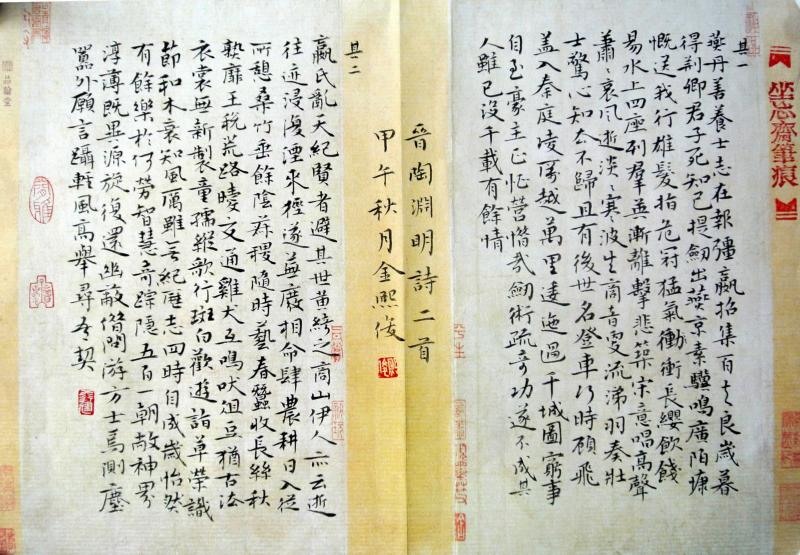 坐忘齋筆痕
其一
燕丹善養士志在報彊嬴招集百夫良歲暮
得荆卿君子死知己提劒出燕京素驥鳴廣陌慷
慨送我行雄髮指危冠猛氣衝衝長纓飲餞
易水上四座列羣英漸離擊悲筑宋意唱高聲
蕭〻哀風逝淡〻寒波生商音更流涕羽奏壯
士驚心知去不歸且有後世名登車何時顧飛
蓋入秦庭凌厲越萬里逶迤過千城圖窮事
自至豪主正怔營惜哉劒術疏奇功遂不成其
人雖已沒千載有餘情
晉陶淵明詩二首
甲午秋月金熙俊
其二
嬴氏亂天紀賢者避其世黃綺之商山伊人亦云逝
往迹浸復湮來徑遂蕪廢相命肆農耕日入從
所憩桑竹垂餘陰菽稷隨時藝春蠶收長絲秋
熟靡王稅荒路曖交通雞犬互鳴吠俎豆猶古法
衣裳無新製童孺縱歌行斑白歡遊詣草榮識
節和木衰知風厲雖無紀曆志四時自成歲怡然
有餘樂於何勞智慧奇踪隱五百一朝敞神界
淳薄既異源旋復還幽蔽借問游方士焉測塵
囂外願言躡輕風高舉尋吾契